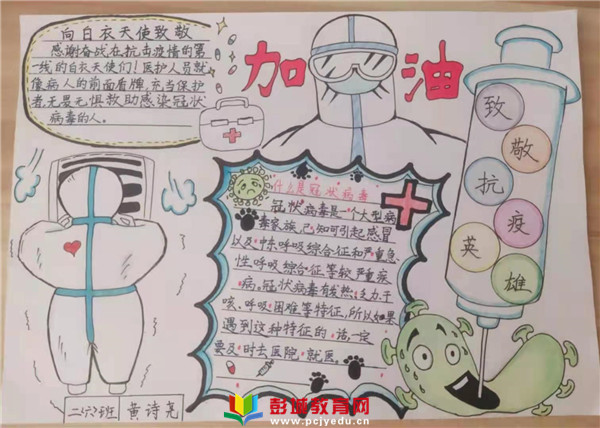 向白衣天使致敬
感谢奋战在抗击疫情的第
一线的白衣天使们!医护人员就
像病人的前面盾牌,充当保护
者,无畏无惧救助感染冠状
病毒的人。
加油
致
敬
抗
疫
英
雄
什么是冠状病毒
冠状病毒是一个大型病
毒家族,己知可引起感冒
以及中东呼吸综合征和严重急
性呼吸综合征等较严重疾
病。冠状病毒有发热、乏力、干
咳、呼吸困难等特征,所以如果
遇到这种特征的话,一定
要及时去医院就医。
黄诗尧
彭城教育网
www.pcjyedu.cn